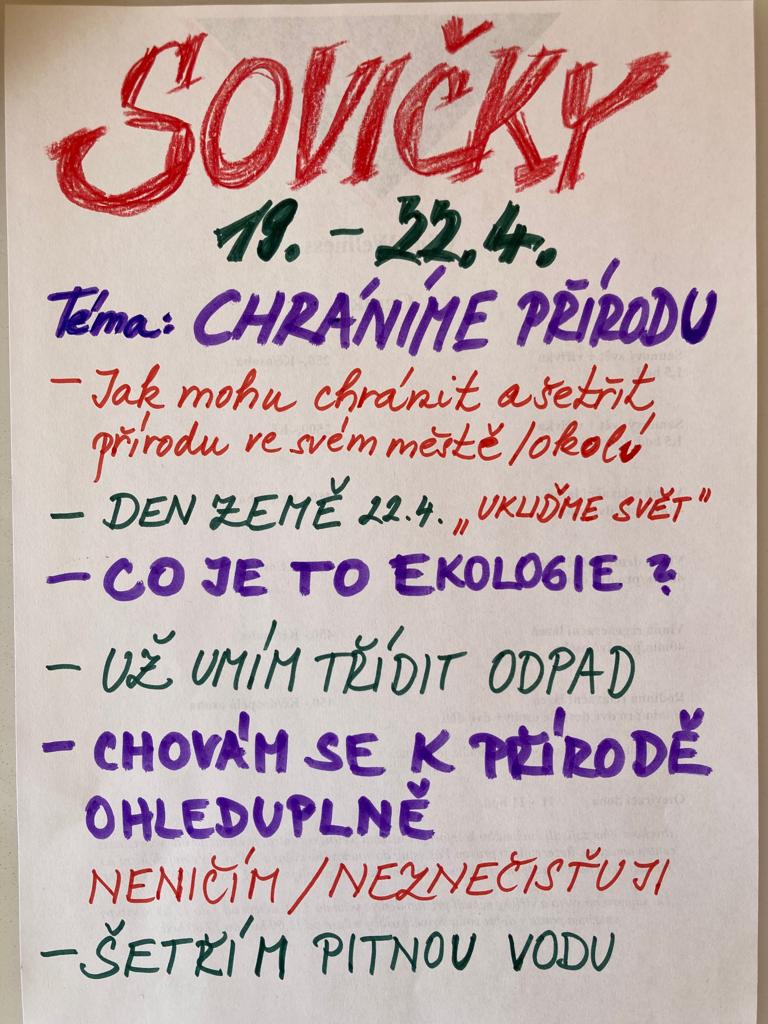 SOVIČKY
19. - 22.4.
Téma: CHRÁNÍME PŘÍRODU
- Jak mohu chránit a šetřit
přírodu ve svém městě /okolí
- DEN ZEMĚ 22.4. „UKLIĎME SVĚT"
- CO JE TO EKOLOGIE?
- UŽ UMÍM TŘÍDIT ODPAD
- CHOVÁM SE K PŘÍRODĚ
OHLEDUPLNĚ
NENIČÍM /NEZNEČISŤUJI
- ŠETŘÍM PITNOU VODU